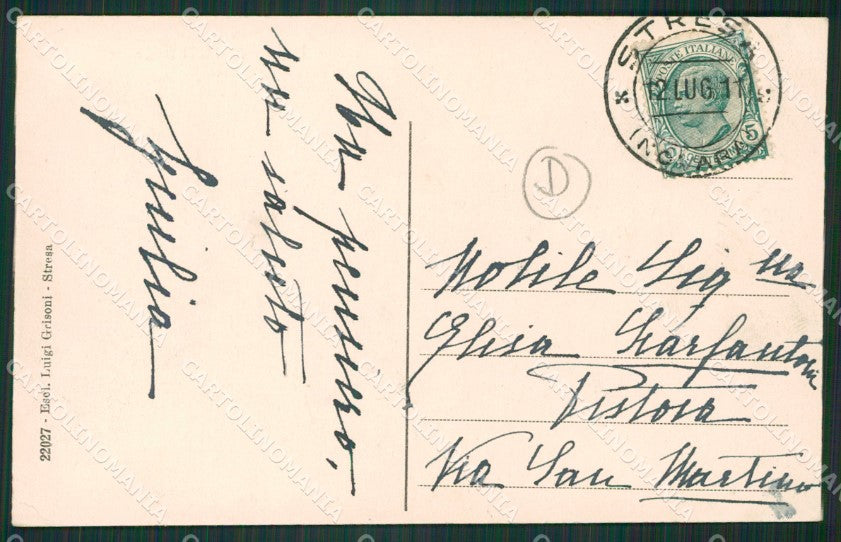 Un pensiero,
un saluto
Giulia
22027 - Escl. Luigi Grisoni - Stresa
STRESA
12 LUG. 11
(NOVARA)
POSTE ITALIANE
5
D
Nobile Sig na
Elisa Scarfantoni
Pistoia
Via San Martino
CARTOLINOMANIA